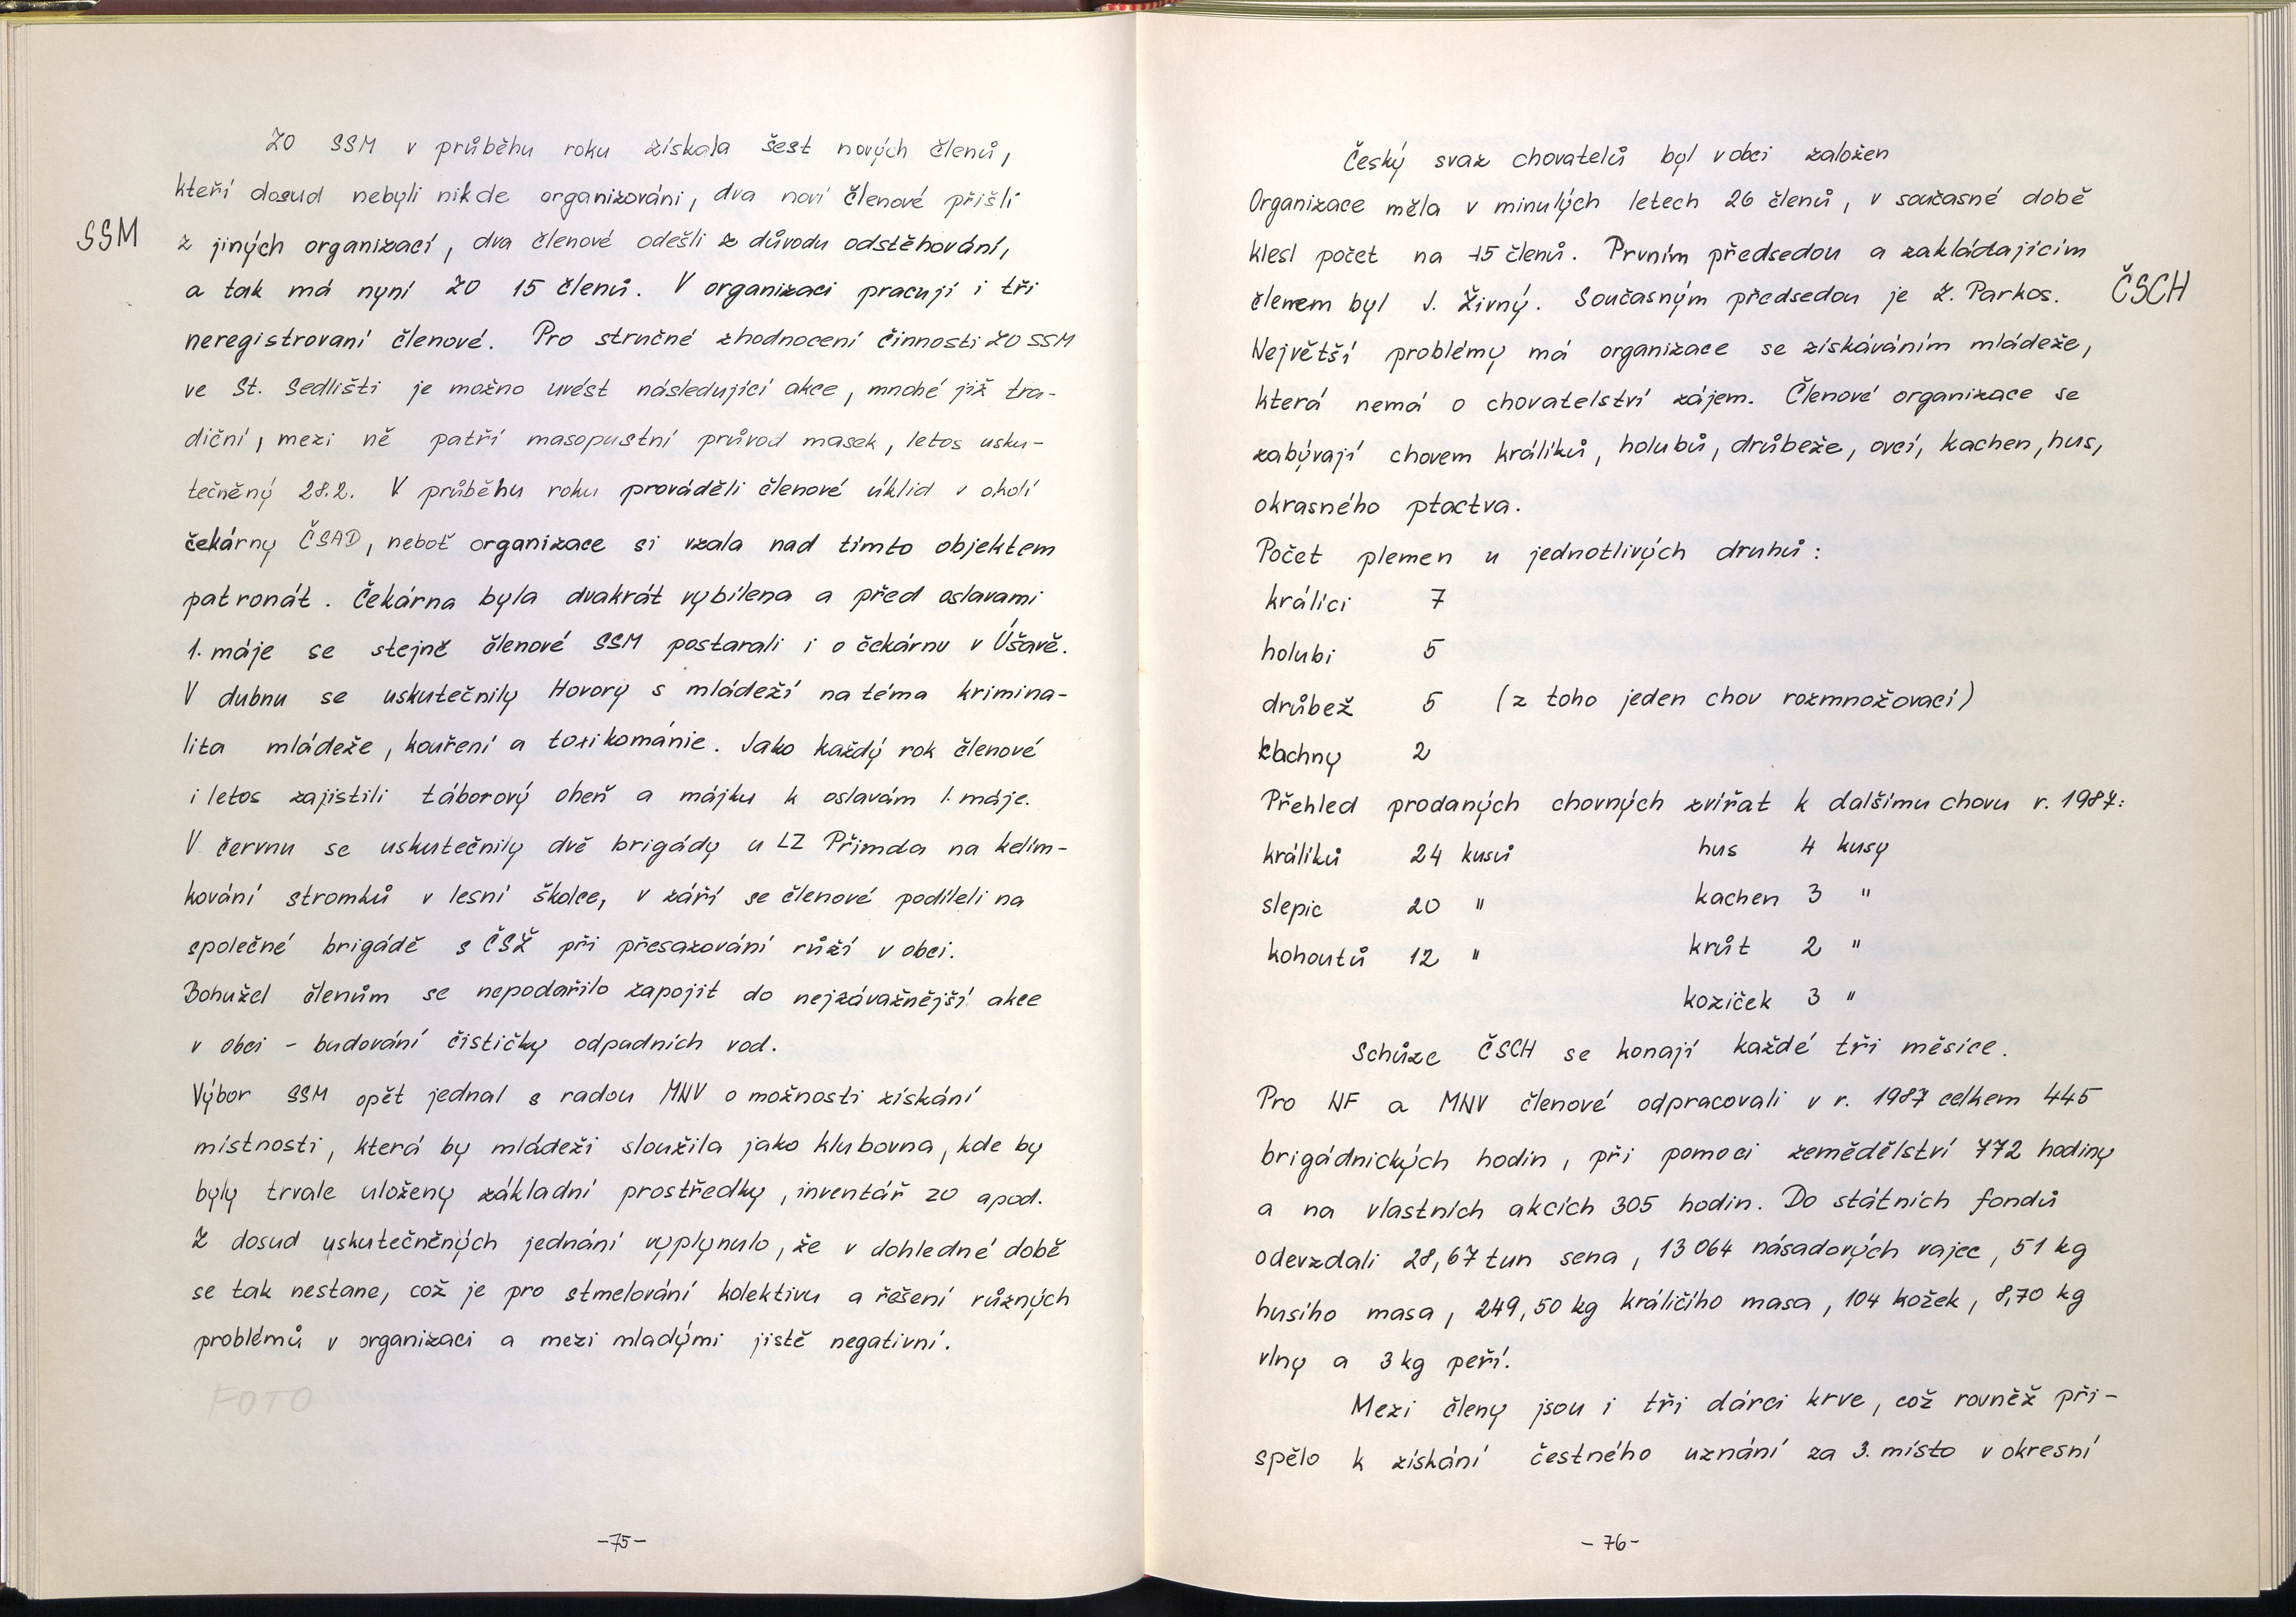 ZO SSM v průběhu roku získala šest nových členů,
kteří dosud nebyli nikde organizováni, dva noví členové přišli
SSM
z jiných organizací, dva členové odešli z důvodu odstěhování,
a tak má nyní ZO 15 členů. V organizaci pracují i tři
neregistrovaní členové. Pro stručné zhodnocení činnosti ZO SSM
ve St. Sedlišti je možno uvést následující akce, mnohé již tra-
diční, mezi ně patří masopustní průvod masek, letos usku-
tečněný 28.2. V průběhu roku prováděli členové úklid v okolí
čekárny ČSAD, neboť organizace si vzala nad tímto objektem
patronát. Čekárna byla dvakrát vybílena a před oslavami
1. máje se stejně členové SSM postarali i o čekárnu v Úšavě.
V dubnu se uskutečnily Hovory s mládeží na téma krimina-
lita mládeže, kouření a toxikománie. Jako každý rok členové
i letos zajistili táborový oheň a májku k oslavám 1. máje.
V červnu se uskutečnily dvě brigády u LZ Přimda na kelím-
kování stromků v lesní školce, v září se členové podíleli na
společné brigádě s ČSŽ při přesazování růží v obci.
Bohužel členům se nepodařilo zapojit do nejzávažnější akce
v obci - budování čističky odpadních vod.
Výbor SSM opět jednal s radou MNV o možnosti získání
místnosti, která by mládeži sloužila jako klubovna, kde by
byly trvale uloženy základní prostředky, inventář ZO apod.
Z dosud uskutečněných jednání vyplynulo, že v dohledné době
se tak nestane, což je pro stmelování kolektivu a řešení různých
problémů v organizaci a mezi mladými jistě negativní.
FOTO
-75-
Český svaz chovatelů byl v obci založen
Organizace měla v minulých letech 26 členů, v současné době
klesl počet na 15 členů. Prvním předsedou a zakládajícím
členem byl J. Živný. Současným předsedou je Z. Parkos.
ČSCH
Největší problémy má organizace se získáváním mládeže,
která nemá o chovatelství zájem. Členové organizace se
zabývají chovem králíků, holubů, drůbeže, ovcí, kachen, hus,
okrasného ptactva.
Počet plemen u jednotlivých druhů:
králíci 7
holubi 5
drůbež 5 (z toho jeden chov rozmnožovací)
kachny 2
Přehled prodaných chovných zvířat k dalšímu chovu r. 1987:
králíků 24 kusů hus 4 kusy
slepic 20 " kachen 3 "
kohoutů 12 " krůt 2 "
koziček 3 "
Schůze ČSCH se konají každé tři měsíce.
Pro NF a MNV členové odpracovali v r. 1987 celkem 445
brigádnických hodin, při pomoci zemědělství 772 hodiny
a na vlastních akcích 305 hodin. Do státních fondů
odevzdali 28,67 tun sena, 13 064 násadových vajec, 51 kg
husího masa, 249,50 kg králičího masa, 104 kožek, 8,70 kg
vlny a 3 kg peří.
Mezi členy jsou i tři dárci krve, což rovněž při-
spělo k získání čestného uznání za 3. místo v okresní
- 76-